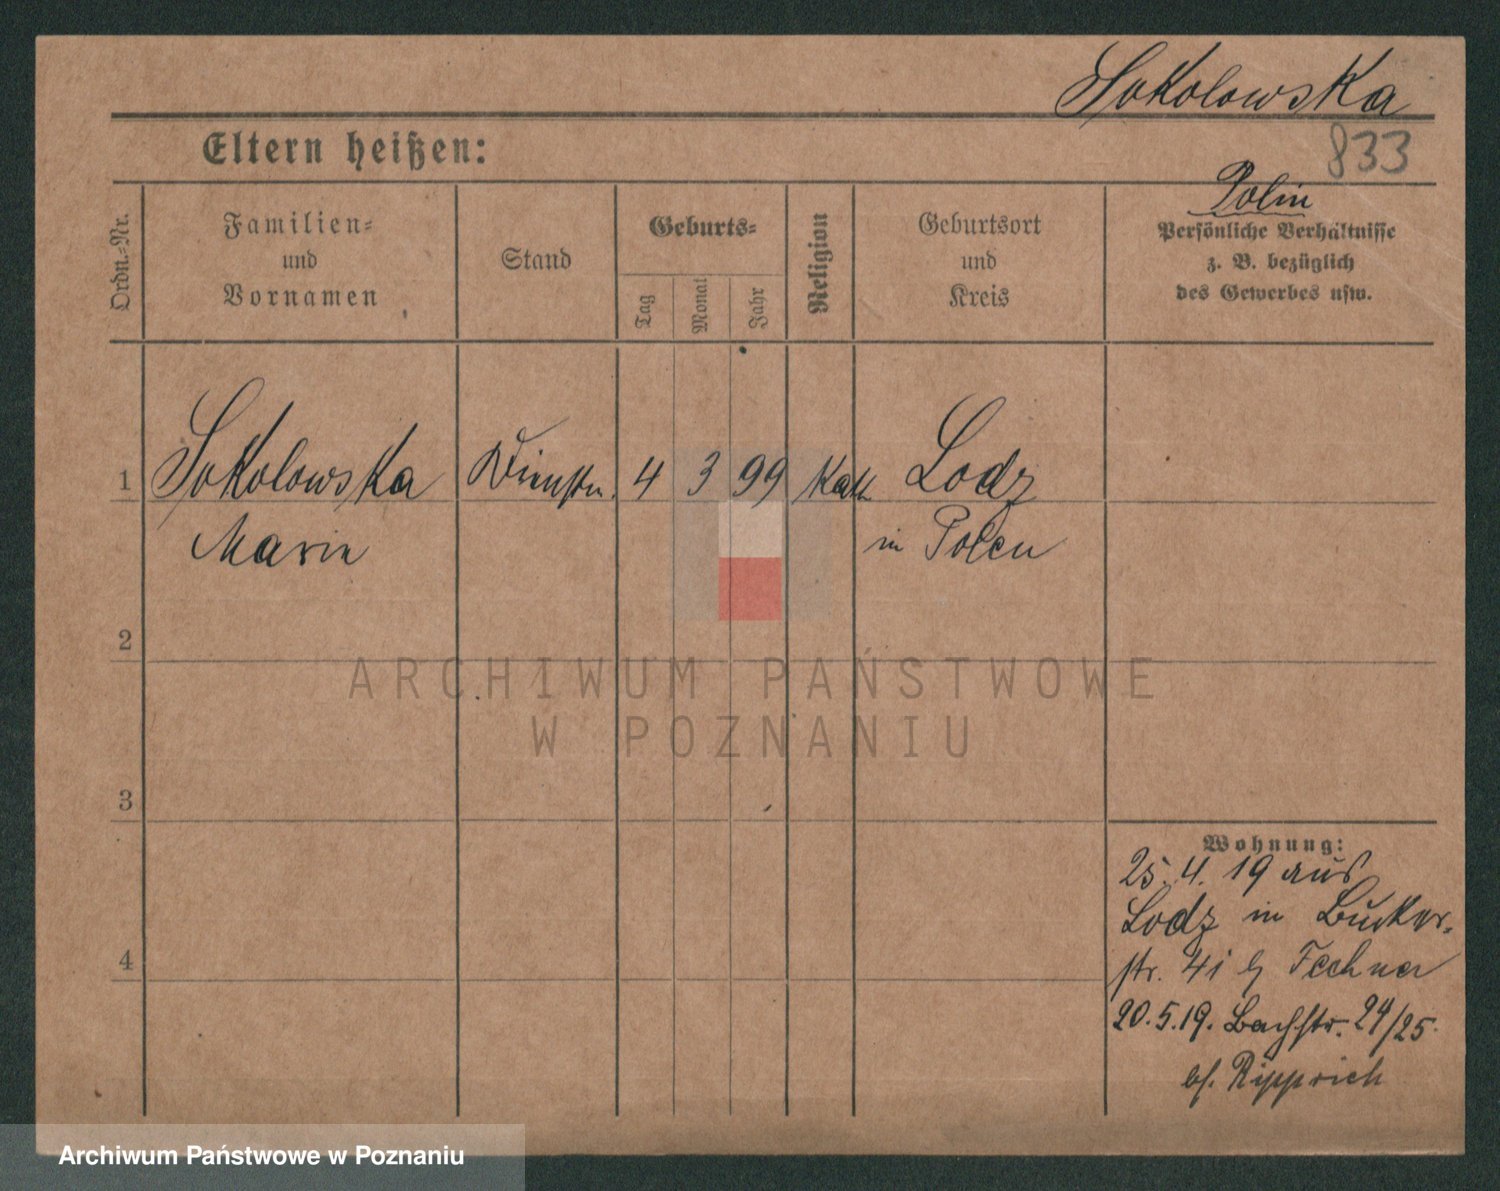 Sokolowska
833
Eltern heißen:
Ordn.-Nr.
Familien-
und
Vornamen
Stand
Geburts-
Tag
Monat
Jahr
Religion
Geburtsort
und
Kreis
Polin
Persönliche Verhältnisse
z. B. bezüglich
des Gewerbes usw.
1 Sokolowska Dienstm. 4 3 99 Kath Lodz
Marie in Polen
2
ARCHIWUM PAŃSTWOWE
W POZNANIU
3
Wohnung:
25. 4. 19 aus
Lodz in Bucker-
4
str. 41 b Fechner
20.5.19. Bachstr. 24/25.
bf. Ripprich
Archiwum Państwowe w Poznaniu